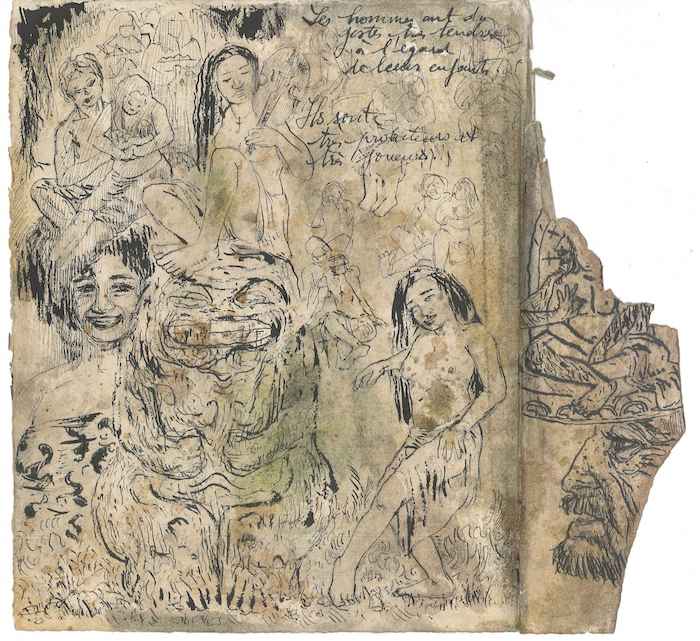 Les hommes ont des
gestes très tendres
à l'égard
de leurs enfants.
Ils sont
très protecteurs et
très joueurs.